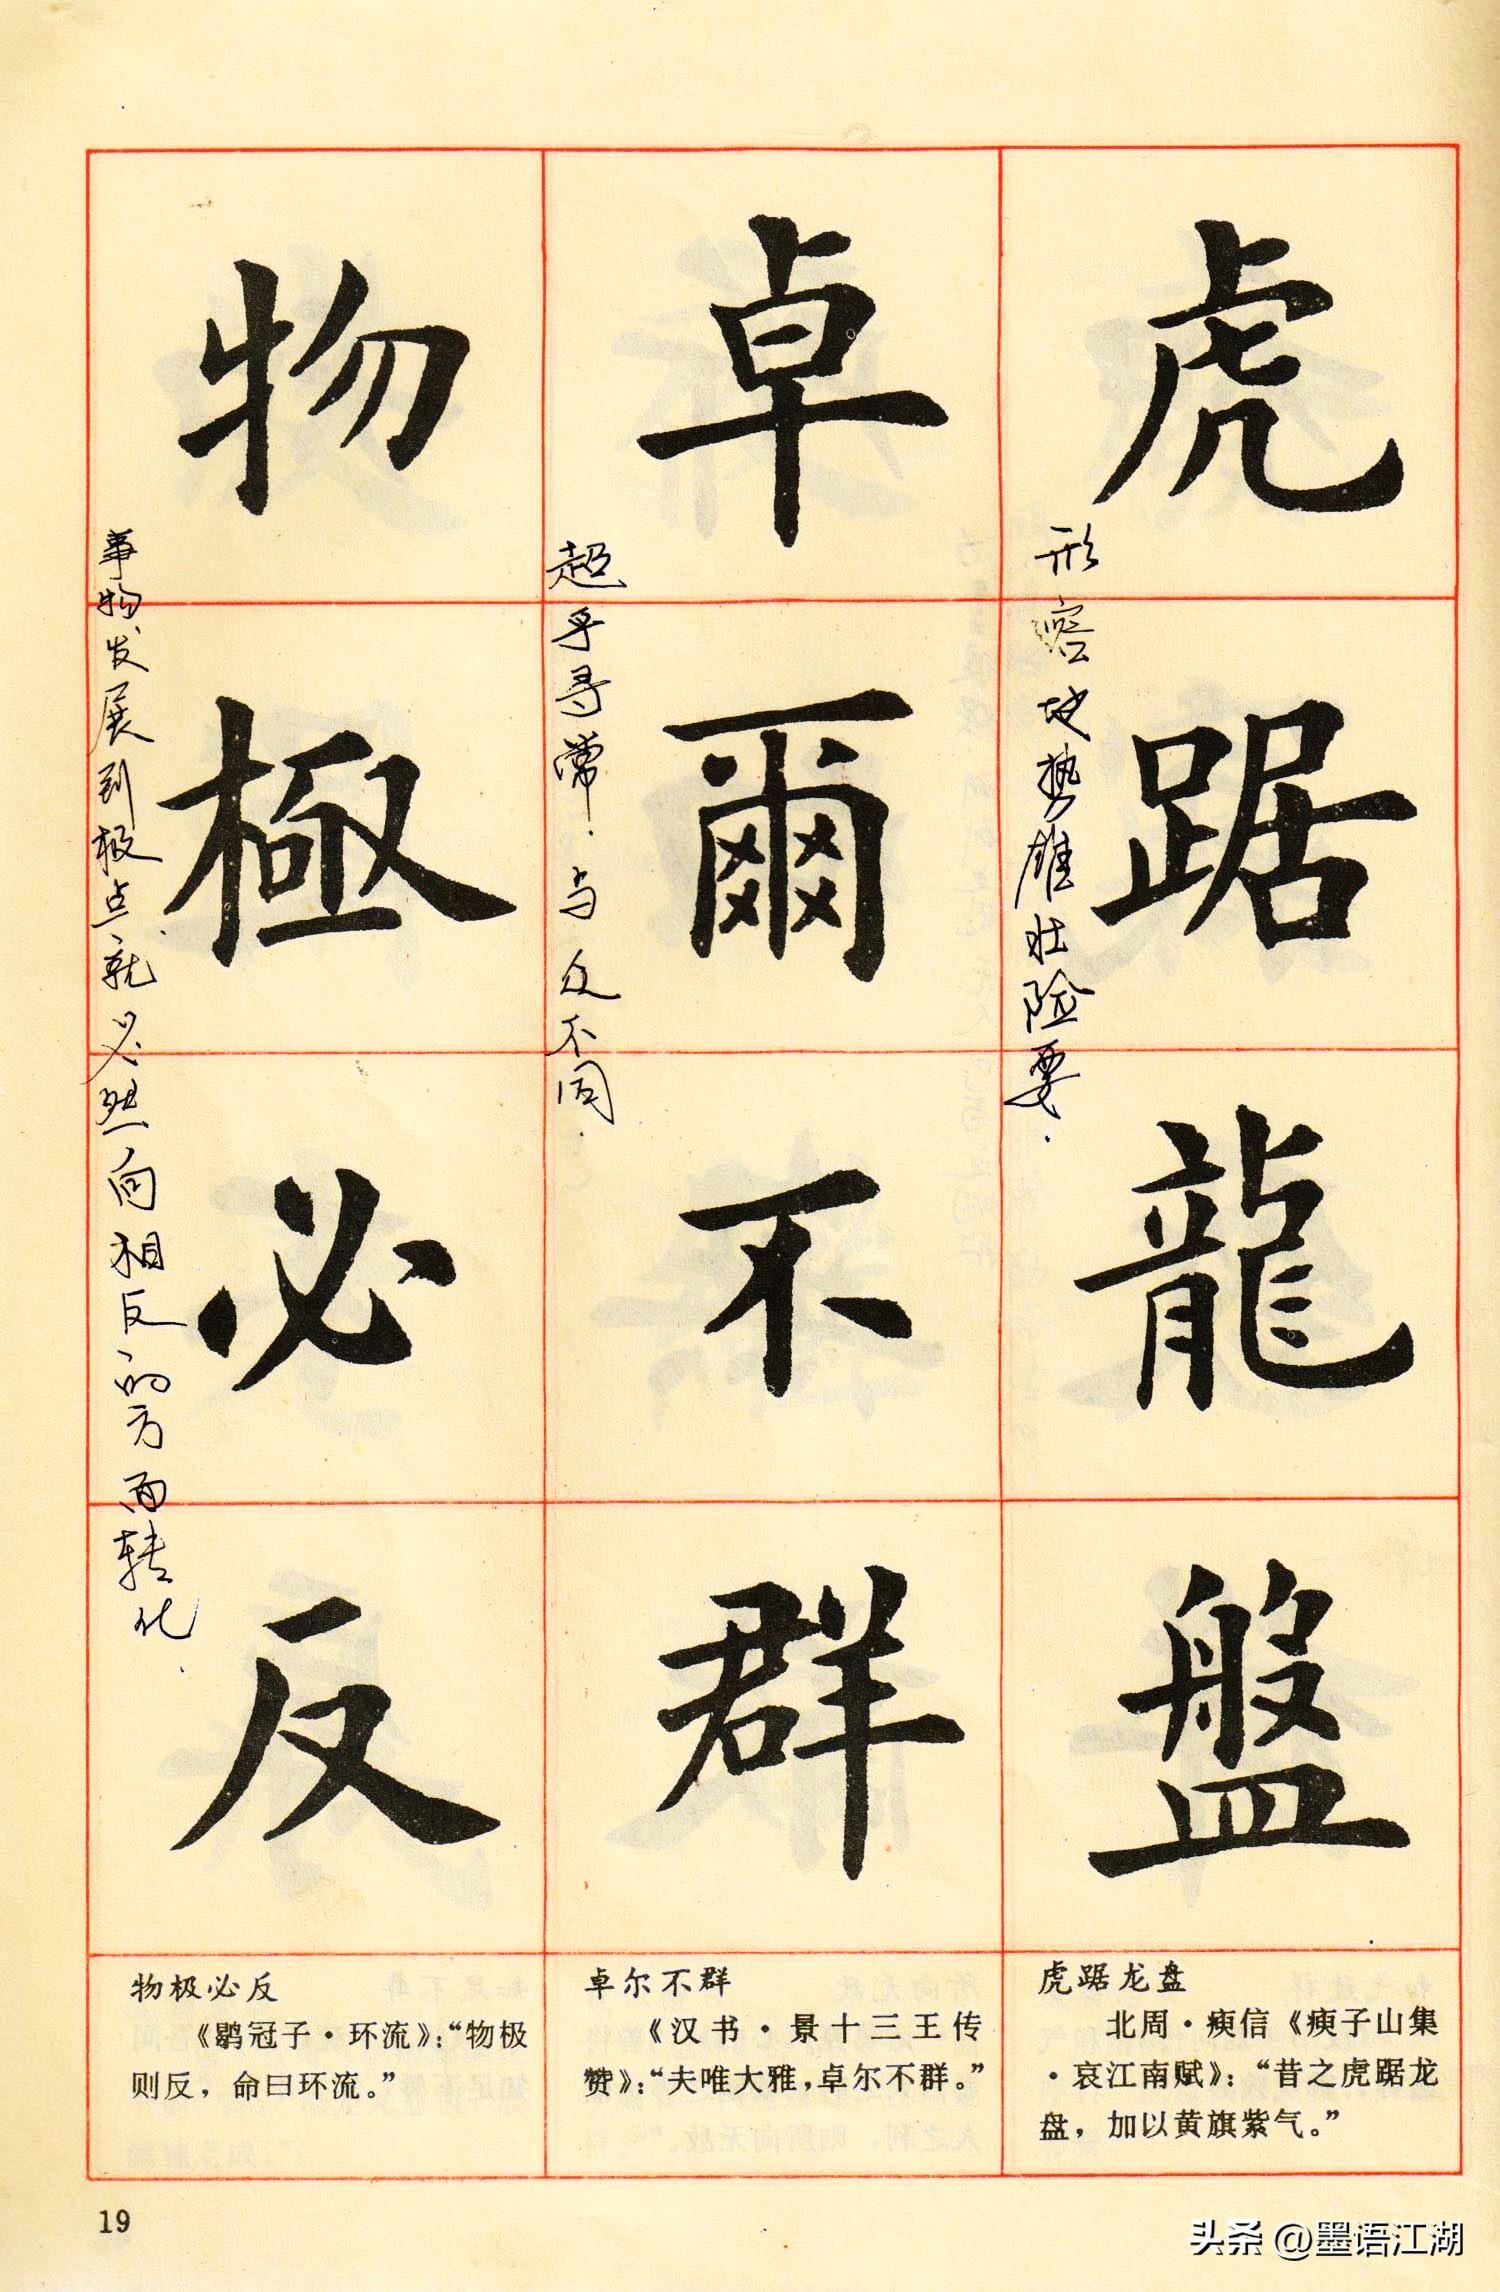 虎踞龍盤
形容地势雄壮险要.
卓爾不群
超乎寻常.与众不同.
物極必反
事物发展到极点就必然向相反的方面转化.
虎踞龙盘
北周·庾信《庾子山集
·哀江南赋》：“昔之虎踞龙
盘，加以黄旗紫气。”
卓尔不群
《汉书·景十三王传
赞》：“夫唯大雅，卓尔不群。”
物极必反
《鹖冠子·环流》：“物极
则反，命曰环流。”
19
头条@墨语江湖